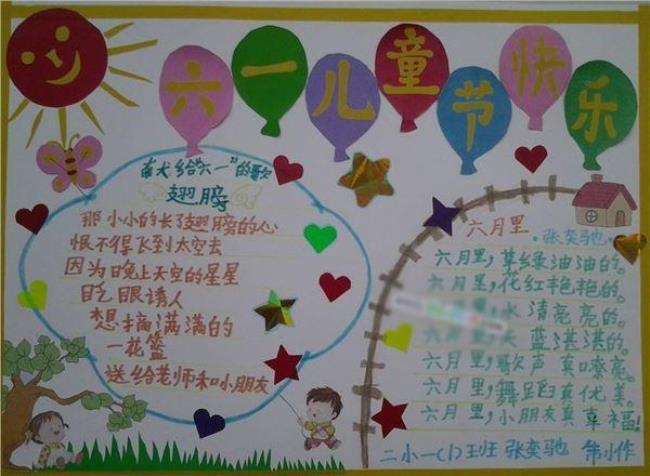 六一儿童节快乐
献给"六一"的歌
翅膀
那小小的长了翅膀的心
恨不得飞到太空去
因为晚上天空的星星
眨眼诱人
想摘满满的
一花篮
送给老师和小朋友
六月里
张奕驰
六月里,草绿油油的。
六月里,花红艳艳的。
六月里,水清亮亮的。
天蓝湛湛的。
六月里,歌声真嘹亮。
六月里,舞蹈真优美。
六月里,小朋友真幸福!
二小一(1)班 张奕驰 制作